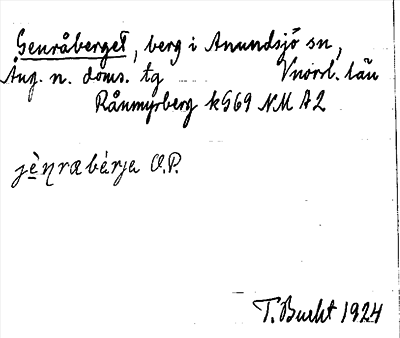 Genråberget, berg i Anundsjö sn,
Ång. n. doms. tg Vnorrl. län
Rånmyrberg k569 NM A2
jènrabárja O.P.
T. Bucht 1924